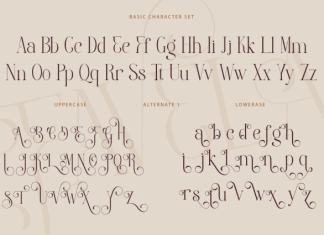 BASIC CHARACTER SET
Aa Bb Cc Dd Ee Ff Gg Hh Ii Jj Kk Ll Mm
Nn Oo Pp Qq Rr Ss Tt Uu Vv Ww Xx Yy Zz
UPPERCASE
ALTERNATE 1
LOWERASE
A B C D E F G H
I J K L M N O P Q R
S T U V W X Y Z
a b c d e f g h
i j k l m n p q
r s t u v w x y z